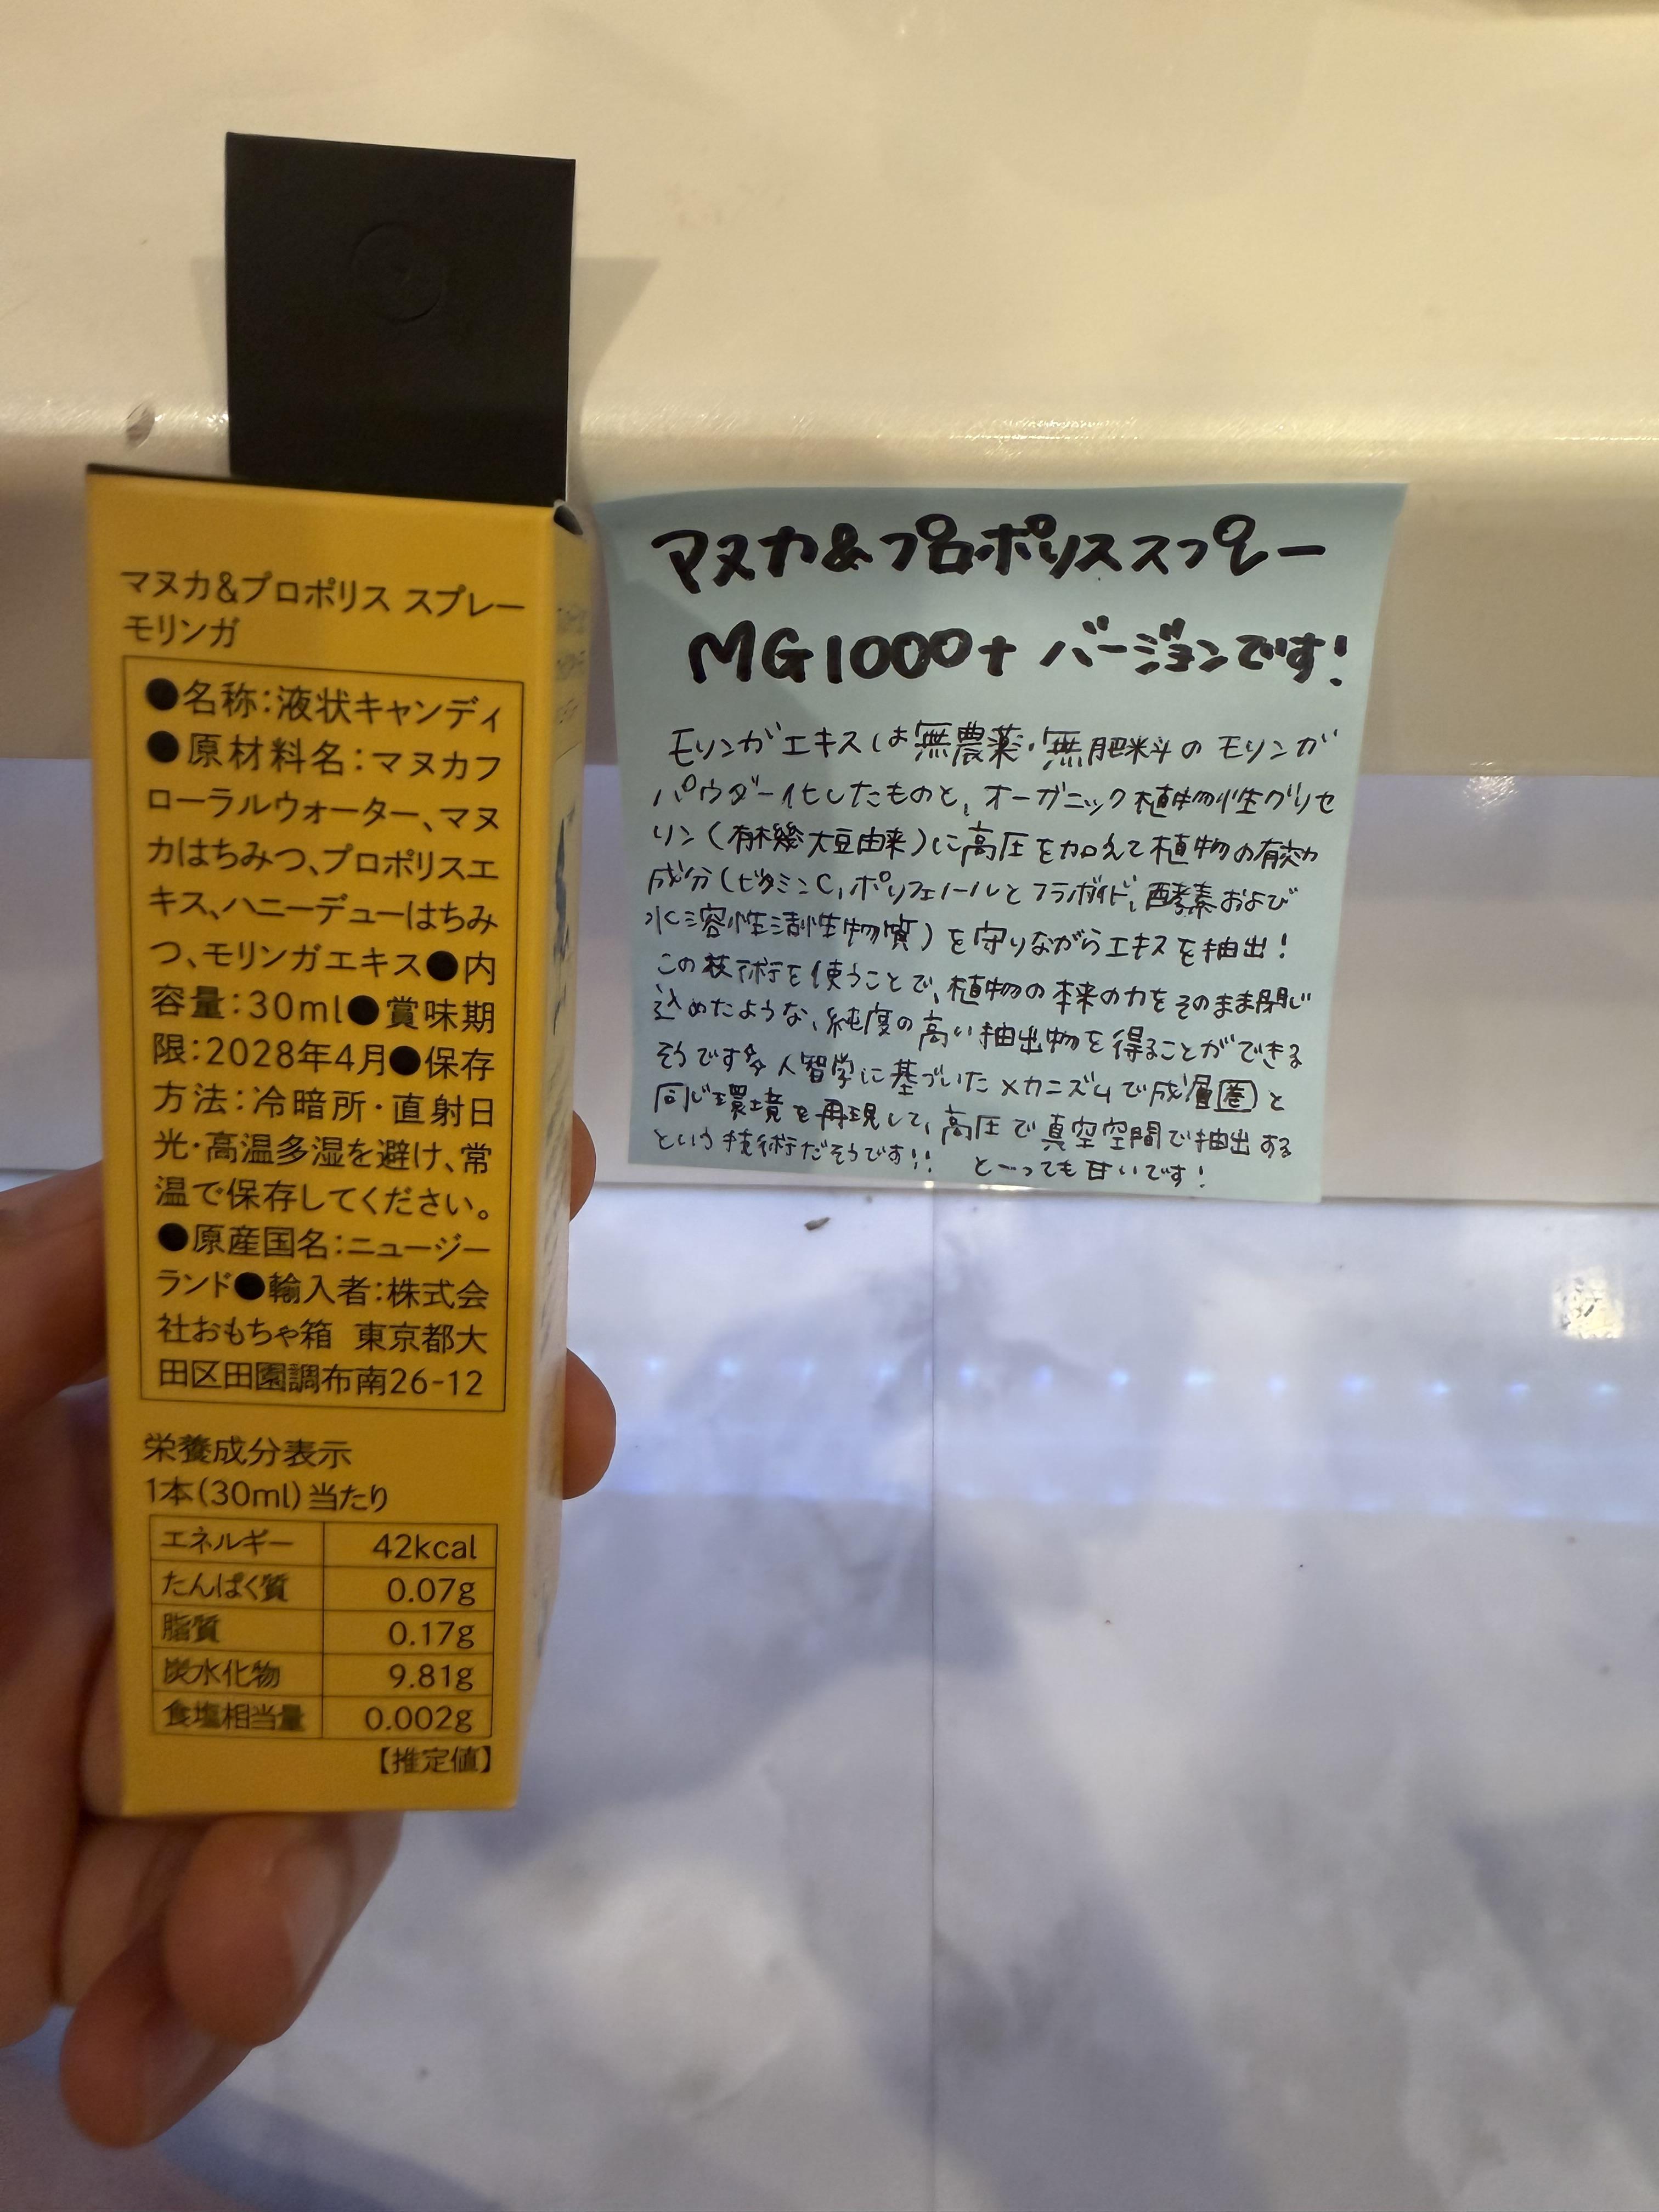 マヌカ&プロポリス スプレー
モリンガ
●名称:液状キャンディ
●原材料名:マヌカフ
ローラルウォーター、マヌ
カはちみつ、プロポリスエ
キス、ハニーデューはちみ
つ、モリンガエキス●内
容量:30ml●賞味期
限:2028年4月●保存
方法:冷暗所・直射日
光・高温多湿を避け、常
温で保存してください。
●原産国名:ニュージー
ランド●輸入者:株式会
社おもちゃ箱 東京都大
田区田園調布南26-12
栄養成分表示
1本(30ml)当たり
エネルギー 42kcal
たんぱく質 0.07g
脂質 0.17g
炭水化物 9.81g
食塩相当量 0.002g
【推定値】
マヌカ&プロポリススプレー
MG1000+ バージョンです!
モリンガエキスは無農薬・無肥料のモリンガ
パウダー化したものと、オーガニック植物性グリセ
リン(有機大豆由来)に高圧を加えて植物の有効
成分(ビタミンC,ポリフェノールとフラボノイド、酵素および
水溶性活性物質)を守りながらエキスを抽出!
この技術を使うことで、植物の本来の力をそのまま閉じ
込めたような、純度の高い抽出物を得ることができる
そうです 人智学に基づいたメカニズムで成層圏と
同じ環境を再現して、高圧で真空空間で抽出する
という技術だそうです!! とーっても甘いです!